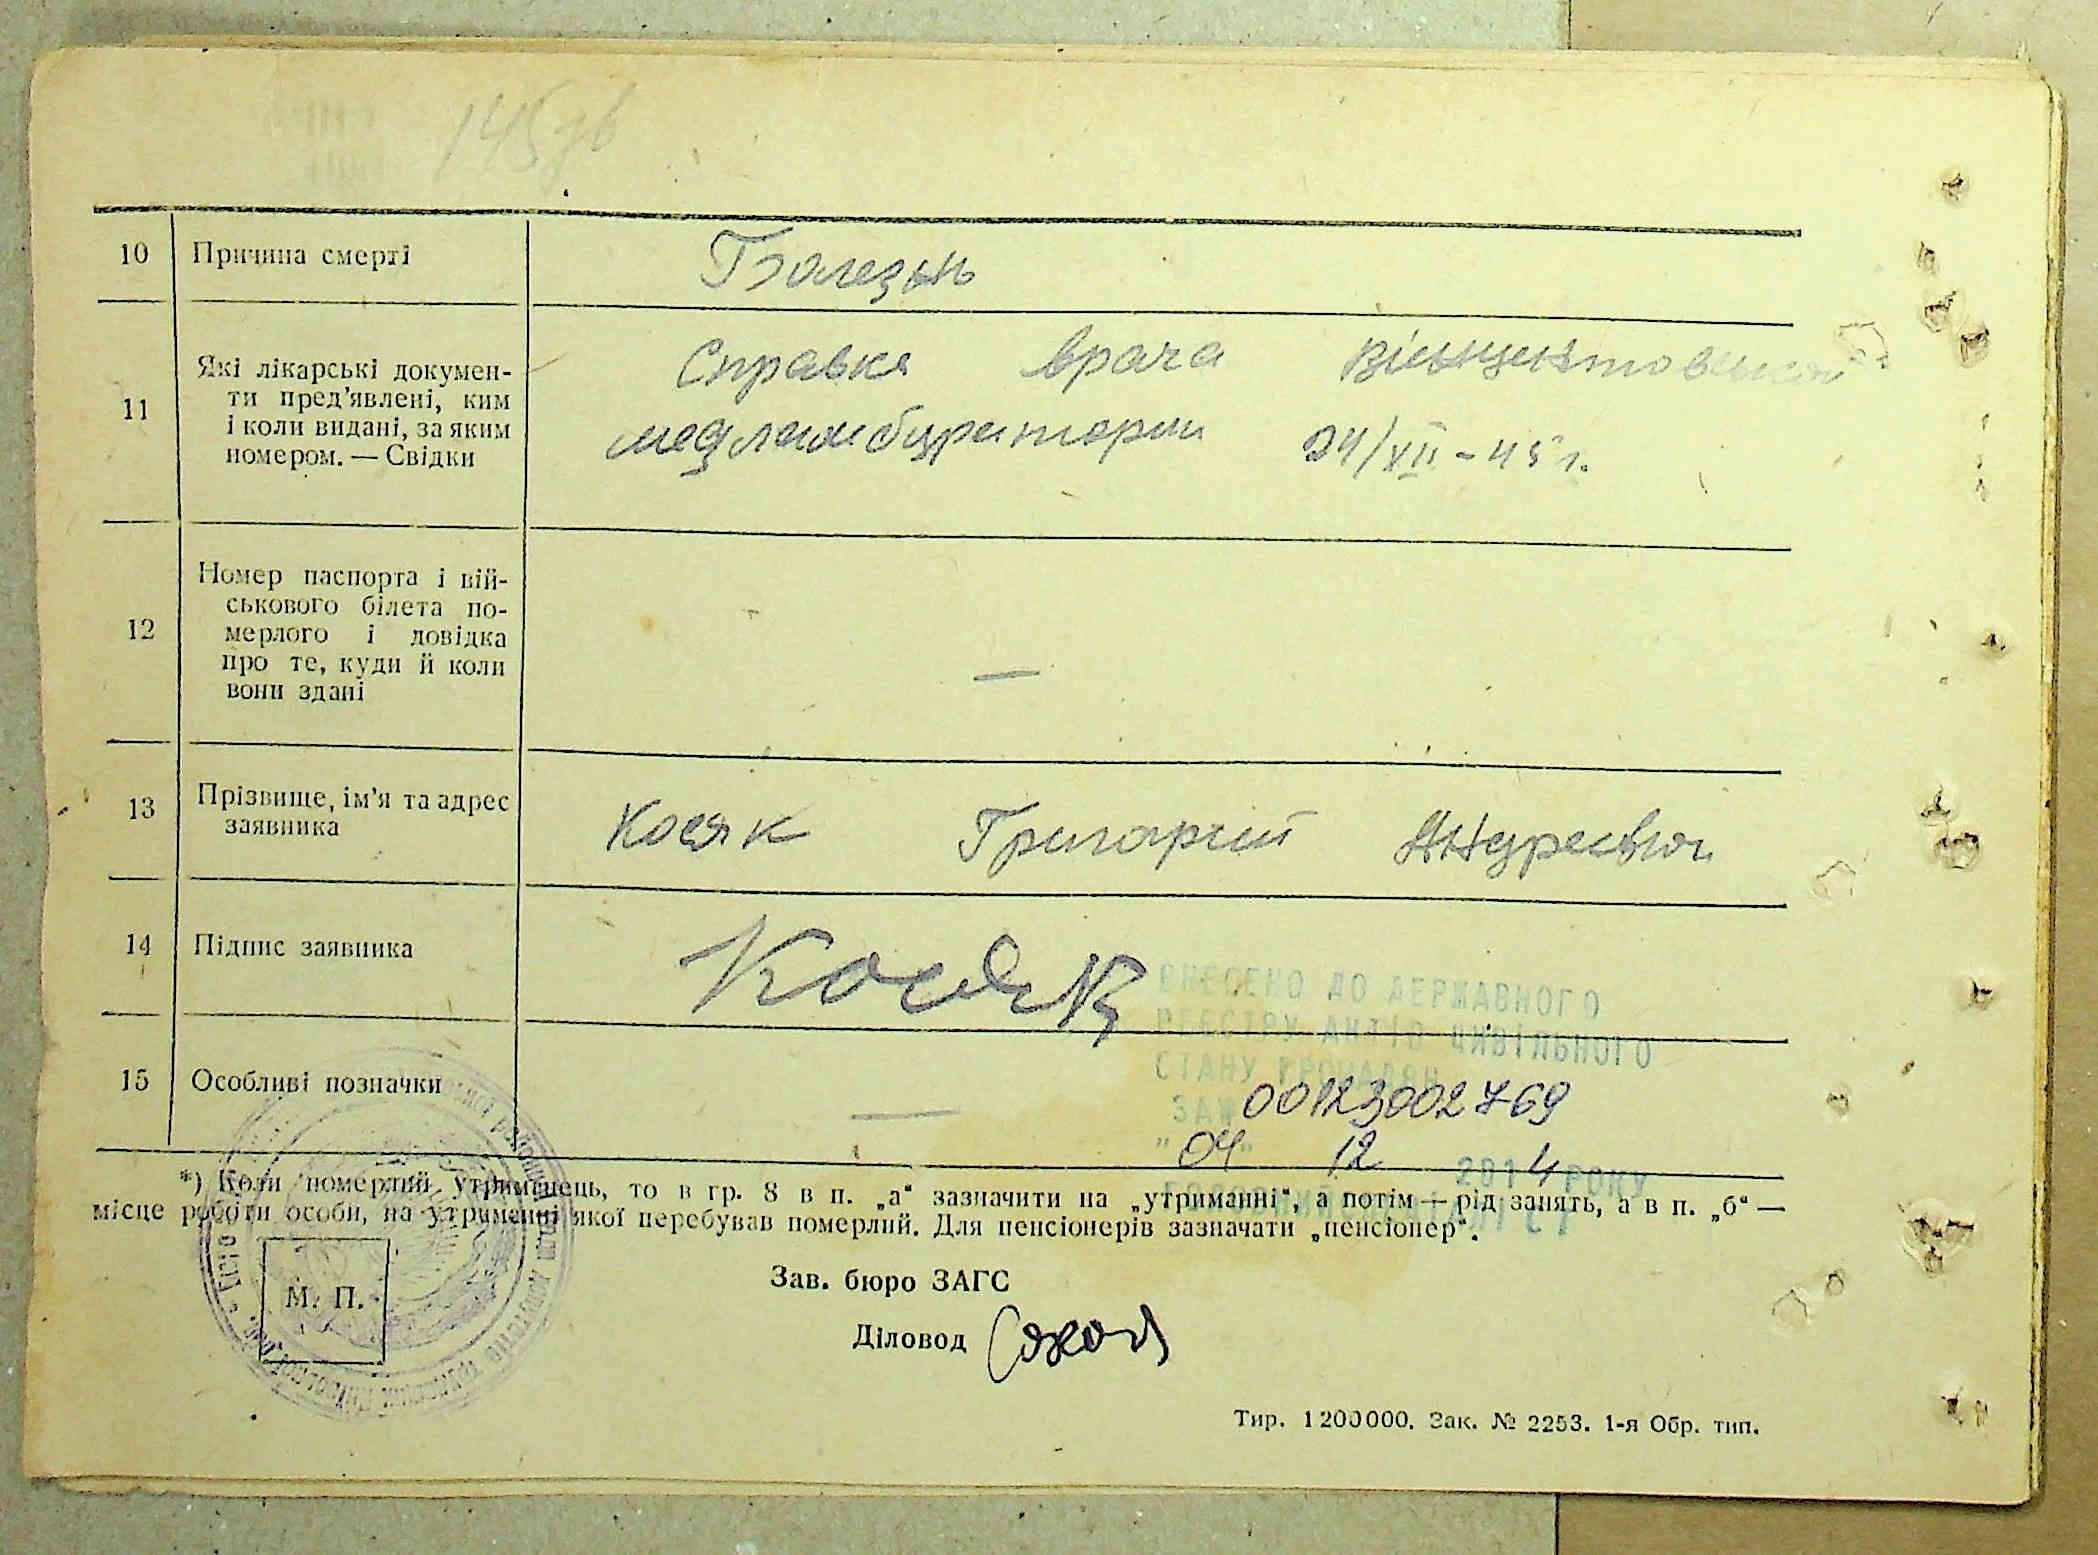 145зв
10 Причина смерті Болезнь
11 Які лікарські докумен-
ти пред'явлені, ким
і коли видані, за яким
номером. — Свідки
Справка врача Вінцентовской
медламбуратории 24/XII - 45 г.
12 Номер паспорта і вій-
ськового білета по-
мерлого і довідка
про те, куди й коли
вони здані
—
13 Прізвище, ім'я та адрес
заявника
Косяк Григорий Андреевич
14 Підпис заявника Косяк
ВНЕСЕНО ДО ДЕРЖАВНОГО
РЕЄСТРУ АКТІВ ЦИВІЛЬНОГО
СТАНУ ГРОМАДЯН
15 Особливі позначки —
ЗА № 00123002769
"04" 12 2014 РОКУ
*) Коли померлий утриманець, то в гр. 8 в п. „а“ зазначити на „утриманні“, а потім — рід занять, а в п. „б“ —
місце роботи особи, на утриманні якої перебував померлий. Для пенсіонерів зазначати „пенсіонер“.
М. П.
Зав. бюро ЗАГС
Діловод
Тир. 1200000. Зак. № 2253. 1-я Обр. тип.